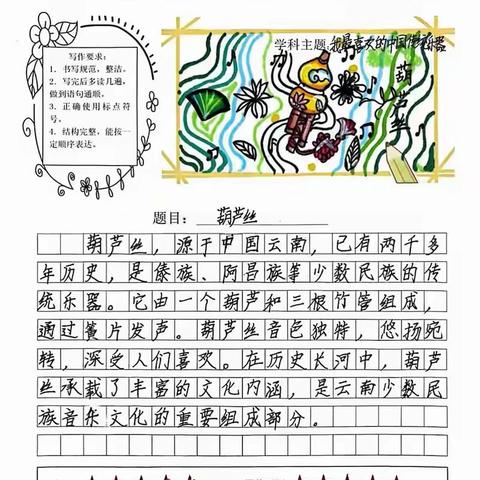 学科主题:我最喜欢的中国传统乐器
写作要求:
1. 书写规范,整洁。
2. 写完后多读几遍,
做到语句通顺。
3. 正确使用标点符
号。
4. 结构完整,能按一
定顺序表达。
葫芦丝
题目: 葫芦丝
葫芦丝,源于中国云南,已有两千多
年历史,是傣族、阿昌族等少数民族的传
统乐器。它由一个葫芦和三根竹管组成,
通过簧片发声。葫芦丝音色独特,悠扬宛
转,深受人们喜欢。在历史长河中,葫芦
丝承载了丰富的文化内涵,是云南少数民
族音乐文化的重要组成部分。